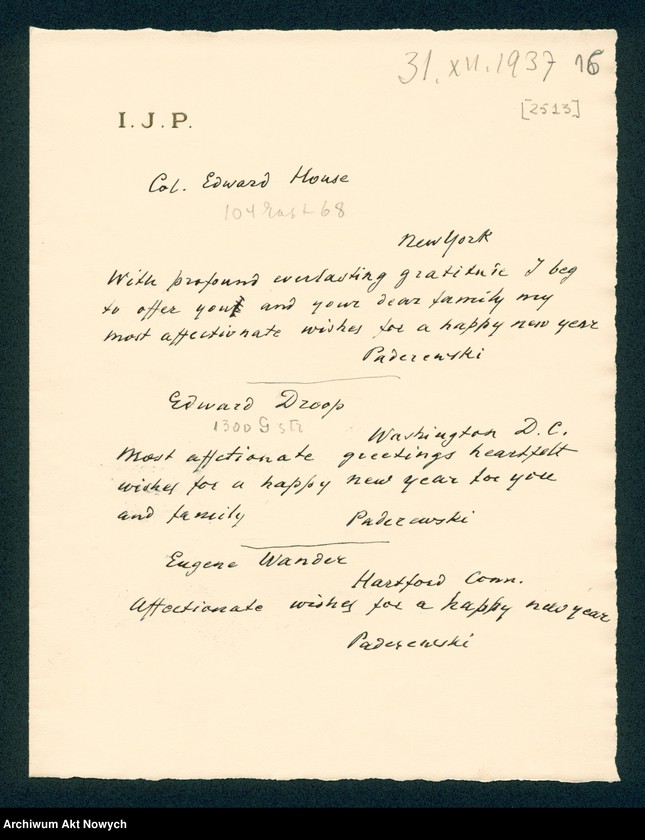 31. XII. 1937 16
[2513]
I. J. P.
Col. Edward House
104 East 68
New York
With profound everlasting gratitude I beg
to offer you and your dear family my
most affectionate wishes for a happy new year
Paderewski
Edward Droop
1300 G str
Washington D.C.
Most affectionate greetings heartfelt
wishes for a happy new year for you
and family
Paderewski
Eugene Wander
Hartford Conn.
Affectionate wishes for a happy new year
Paderewski
Archiwum Akt Nowych